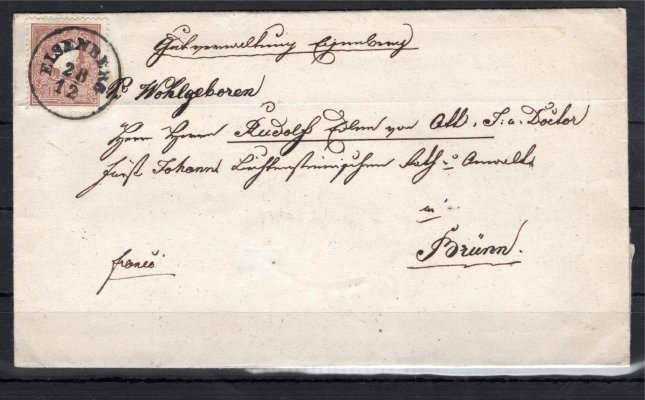 EISENBERG
28
12
Gutsverwaltung Eisenberg
Sr Wohlgeboren
Herr Herrn Rudolf Edlen von Ott, J. u. Doctor
fürst Johann Liechtensteinischen Rath u. Anwalt
in
Brünn.
franco